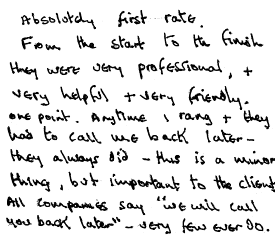 Absolutely first rate.
From the start to the finish
they were very professional, +
very helpful + very friendly.
one point. Anytime I rang + they
had to call me back later -
they always did - this is a minor
thing, but important to the client
All companies say "we will call
you back later" - very few ever do.